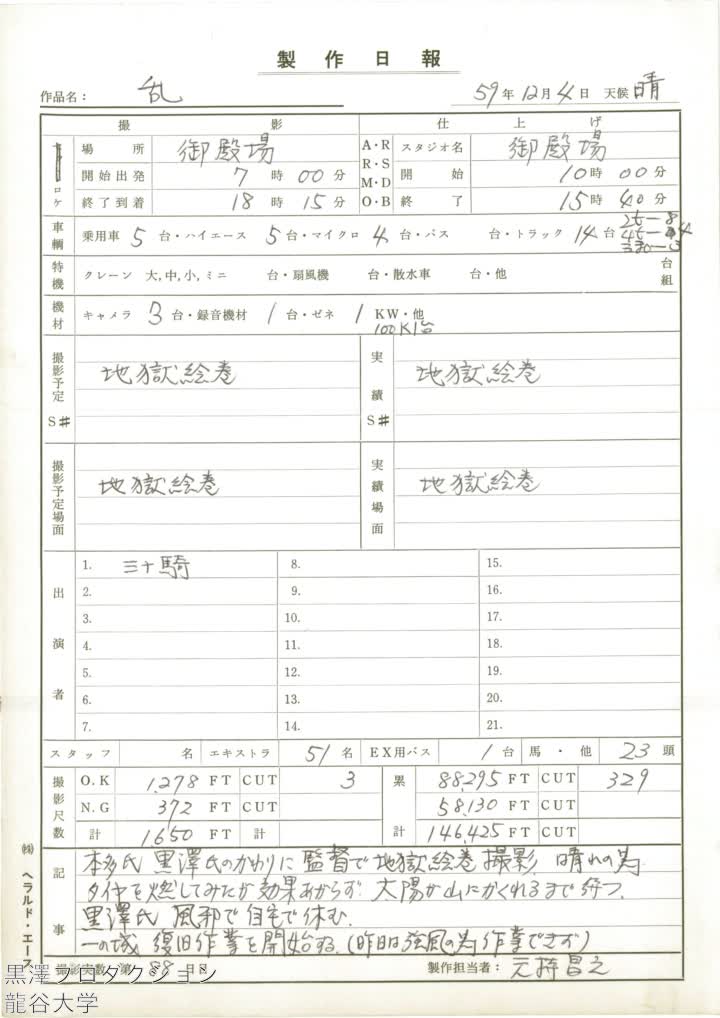 製作日報
作品名: 乱 59年12月4日 天候 晴
撮影 仕上げ
ロケ 場所 御殿場 A・R R・S M・D O・B スタジオ名 御殿場
開始出発 7時00分 開始 10時00分
終了到着 18時15分 終了 15時40分
車輌 乗用車 5台・ハイエース 5台・マイクロ 4台・バス 台・トラック 14台
特機 クレーン 大,中,小,ミニ 台・扇風機 台・散水車 台・他 台組
機材 キャメラ 3台・録音機材 1台・ゼネ 1 KW・他
100K1台
撮影予定S# 地獄絵巻 実績S# 地獄絵巻
撮影予定場面 地獄絵巻 実績場面 地獄絵巻
出演者
1. 三十騎 8. 15.
2. 9. 16.
3. 10. 17.
4. 11. 18.
5. 12. 19.
6. 13. 20.
7. 14. 21.
スタッフ 名 エキストラ 51名 EX用バス 1台 馬・他 23頭
撮影尺数 O.K 1,278 FT CUT 3 累計 88,295 FT CUT 329
N.G 372 FT 58,130 FT CUT
計 1,650 FT 計 146,425 FT CUT
記事 本多氏 黒澤氏のかわりに監督で地獄絵巻撮影. 晴れの為
タイヤを燃してみたが効果あがらず. 太陽が山にかくれるまで待つ.
黒澤氏 風邪で自宅で休む.
一の城 復旧作業を開始する.(昨日は強風の為作業できず)
撮影実数 第88日目 製作担当者: 元持昌之
㈱ ヘラルド・エース
黒澤プロダクション
龍谷大学